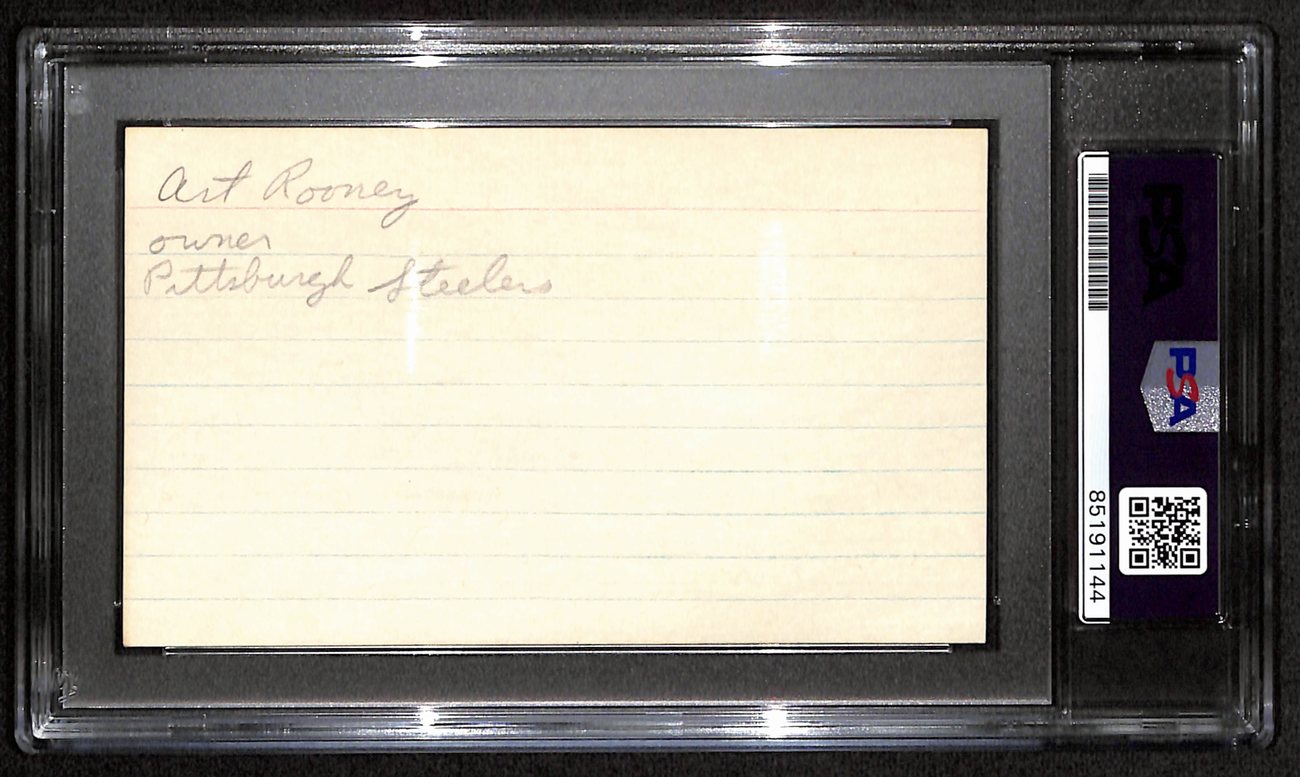 Art Rooney
owner
Pittsburgh Steelers
PSA
PSA
85191144